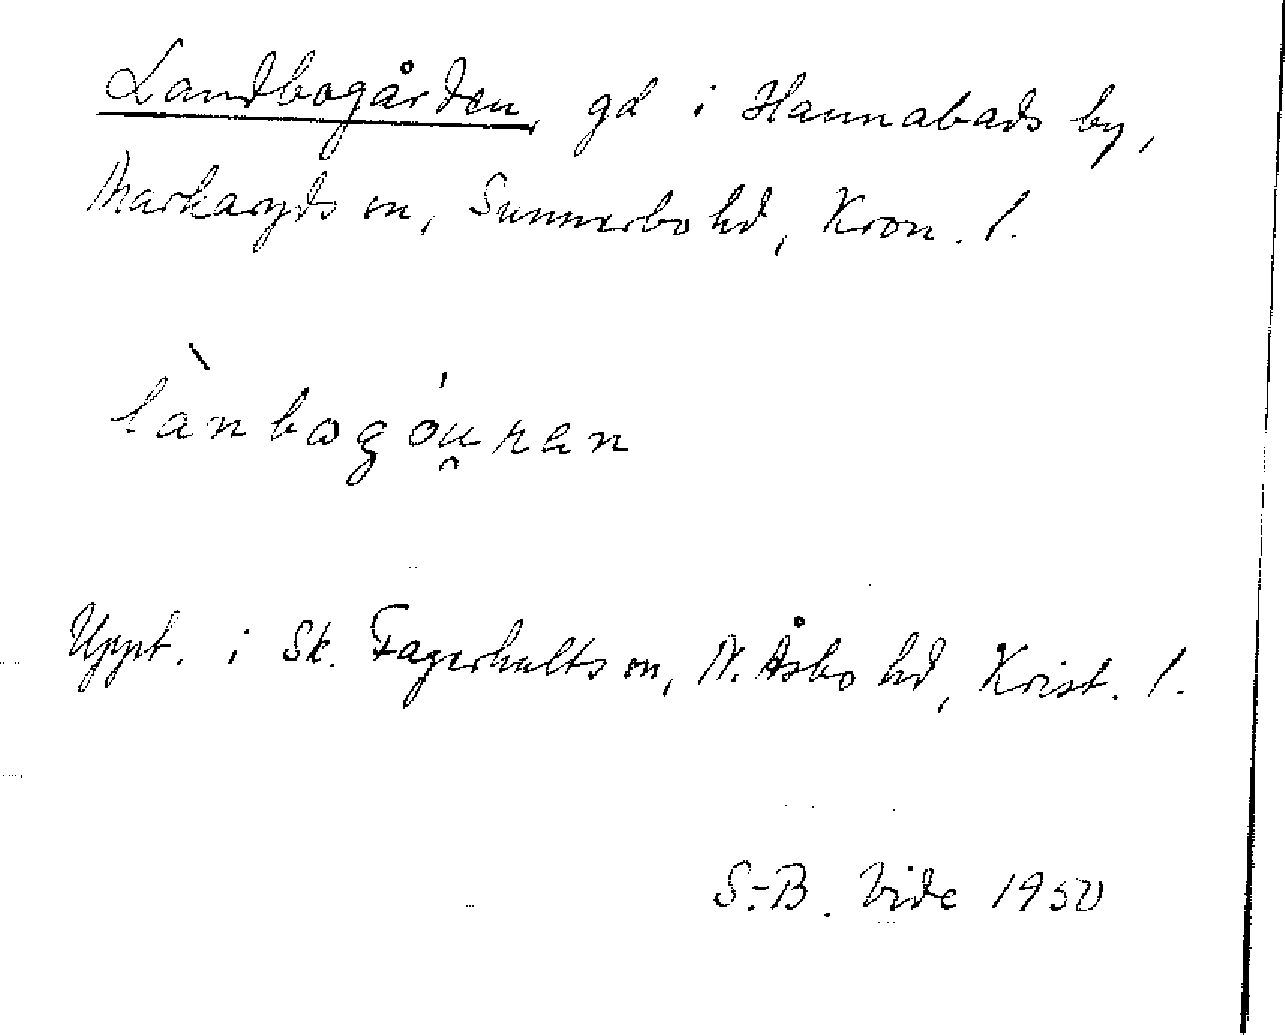 Landbogården, gd i Hannabads by,
Markaryds sn, Sunnerbo hd, Kron. l.
lànbogóu̯ran
Uppt. i Sk. Fagerhults sn, N. Åsbo hd, Krist. l.
S.-B. Vide 1950